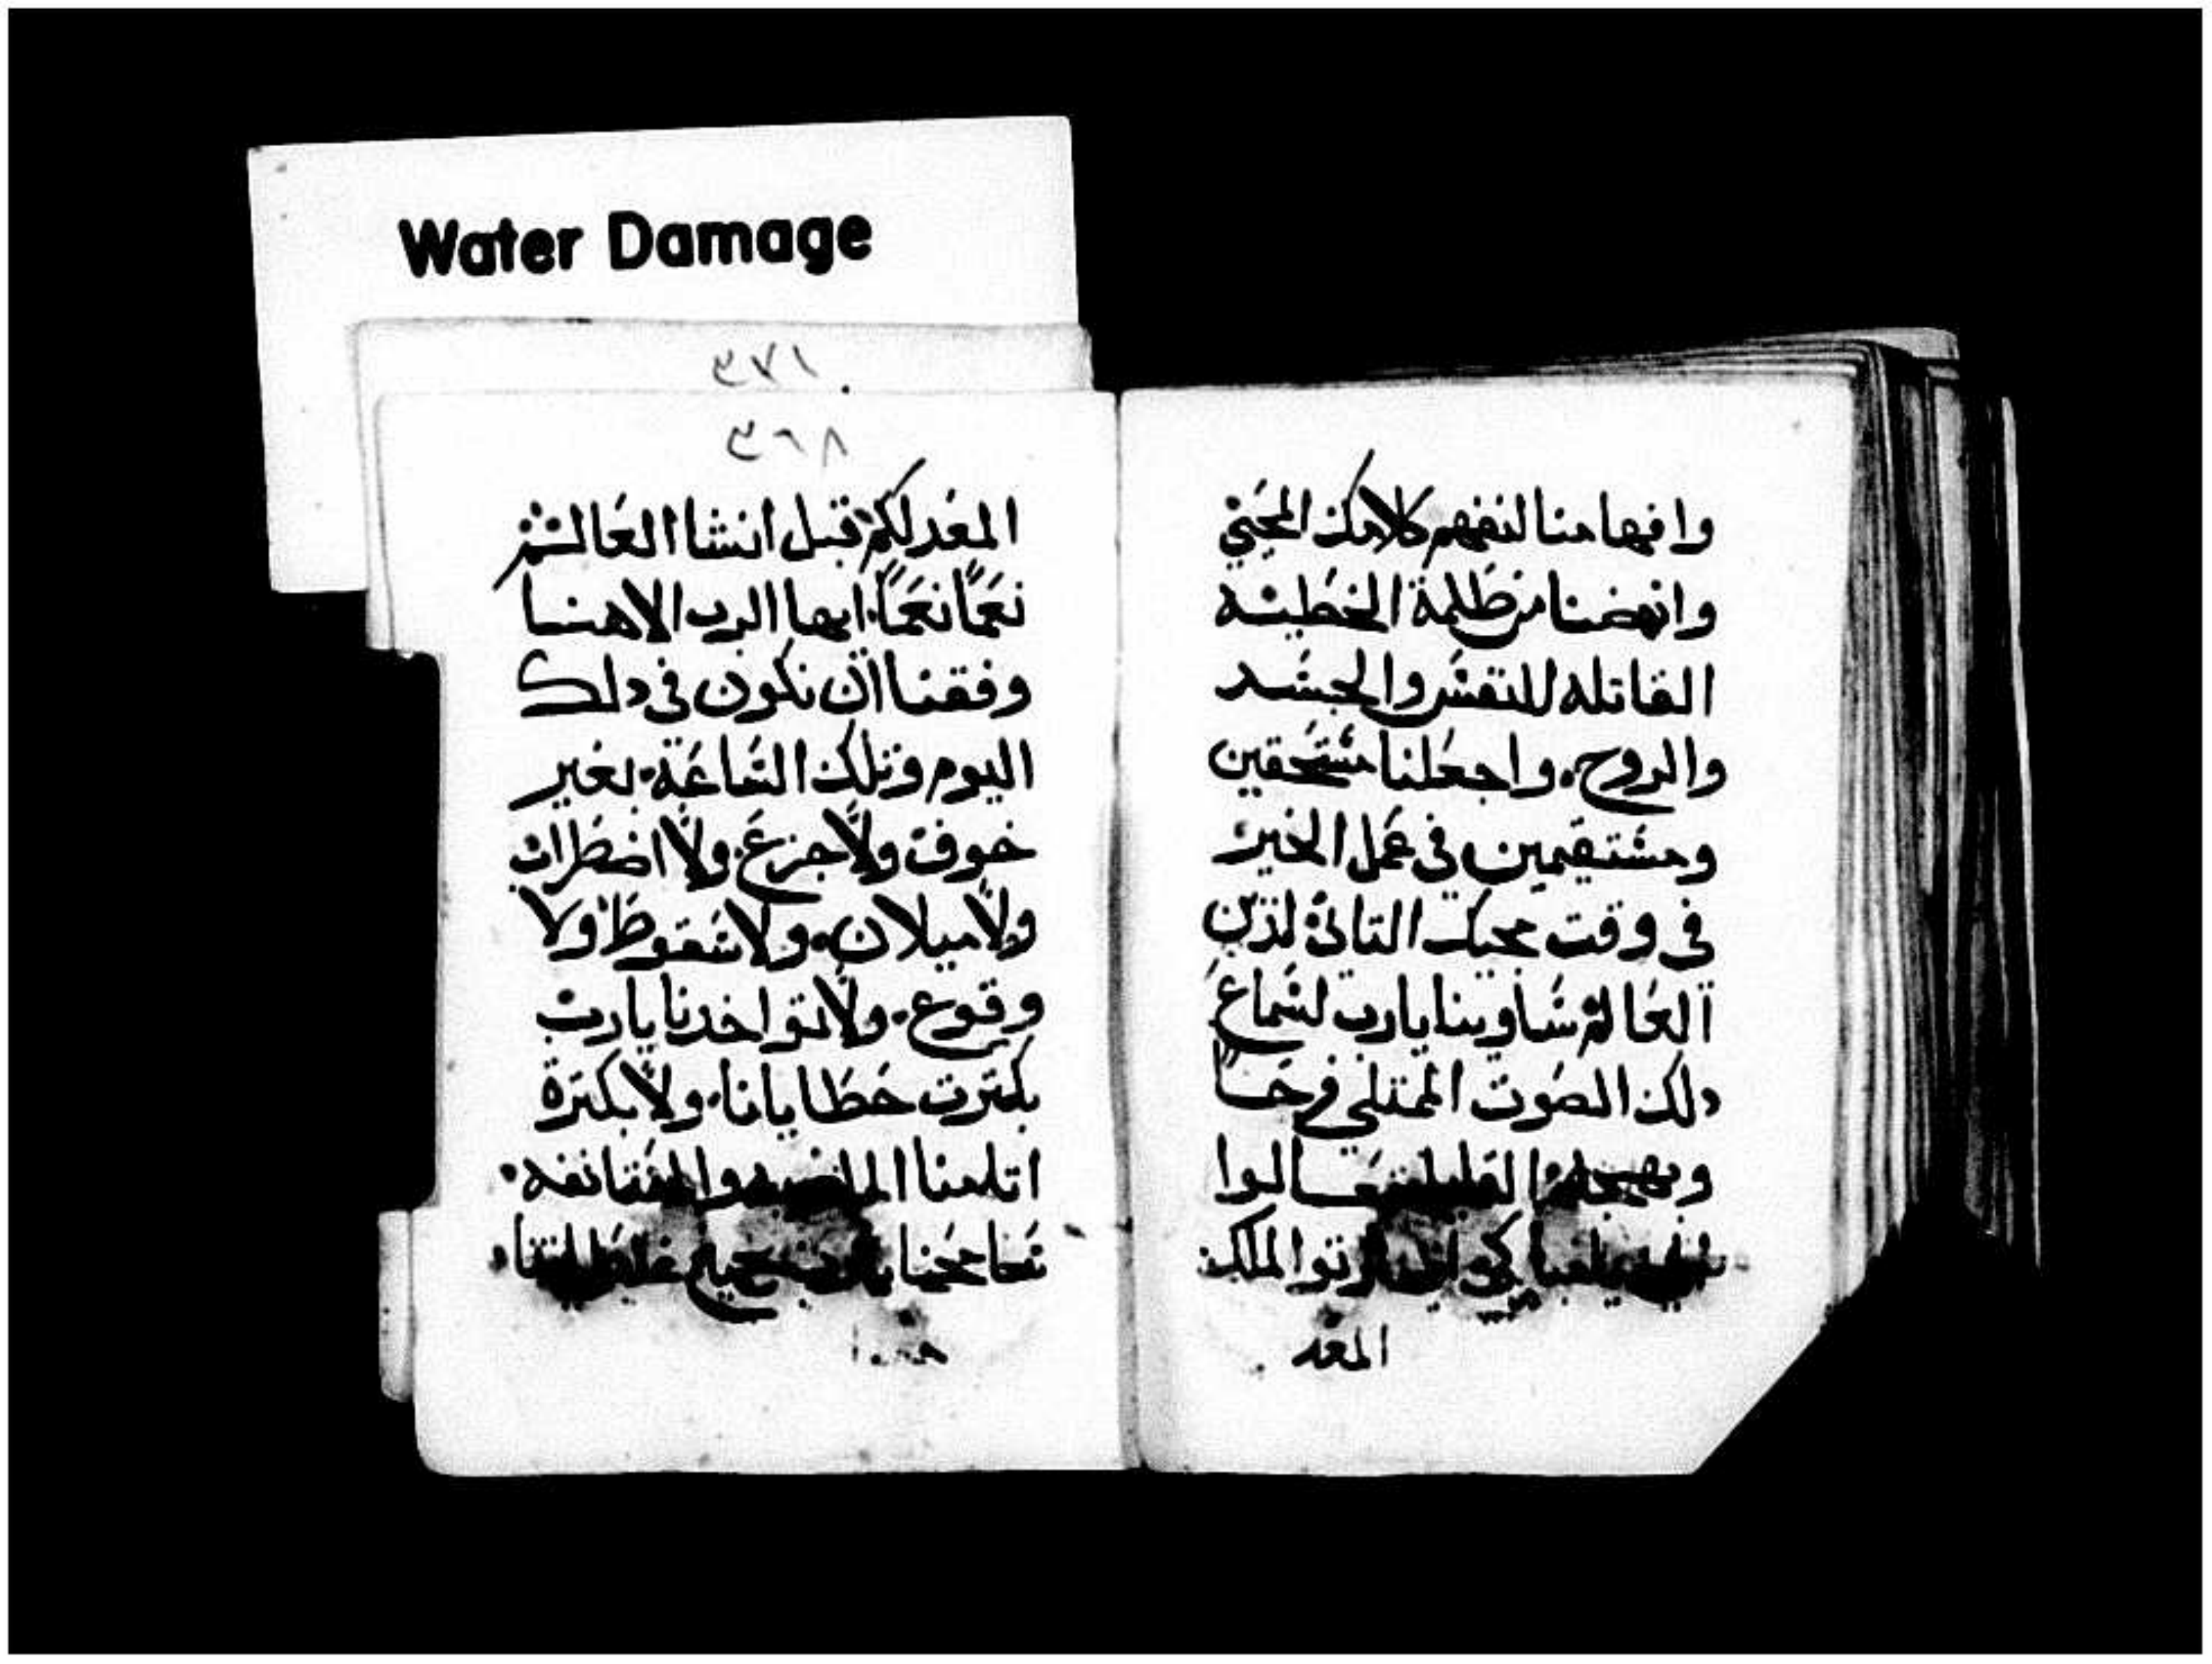 Water Damage
٣٧١
٣٦٨
وافهامنا لنفهم كلامك المحيي
وانهضنا من ظلمة الخطيه
القاتله للنفس والجسد
والروح. واجعلنا مستحقين
ومستقيمين في عمل الخير
في وقت مجيك التاني لدين
العالم ساوينا يارب لسماع
دلك الصوت الممتلي فرحاً
تعالوا
الي يا مباركي ابي ارتوا الملك
المعد
المعد لكم قبل انشا العالم
نعماً نعماً. ايها الرب الاهنا
وفقنا ان نكون في دلك
اليوم وتلك الساعة. بغير
خوف ولا جزع. ولا اضطراب
ولا ميلان. ولا سقوط ولا
وقوع. ولا تواخدنا يارب
بكترت خطايانا. ولا بكترة
اتامنا الماضيه والمستانفه.